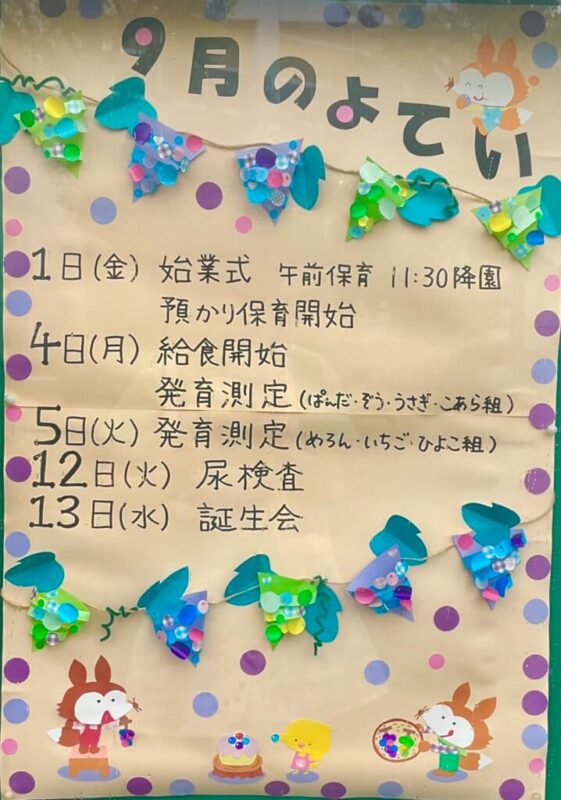 9月のよてい
1日(金) 始業式 午前保育 11:30降園
預かり保育開始
4日(月) 給食開始
発育測定(ぱんだ・ぞう・うさぎ・こあら組)
5日(火) 発育測定(めろん・いちご・ひよこ組)
12日(火) 尿検査
13日(水) 誕生会